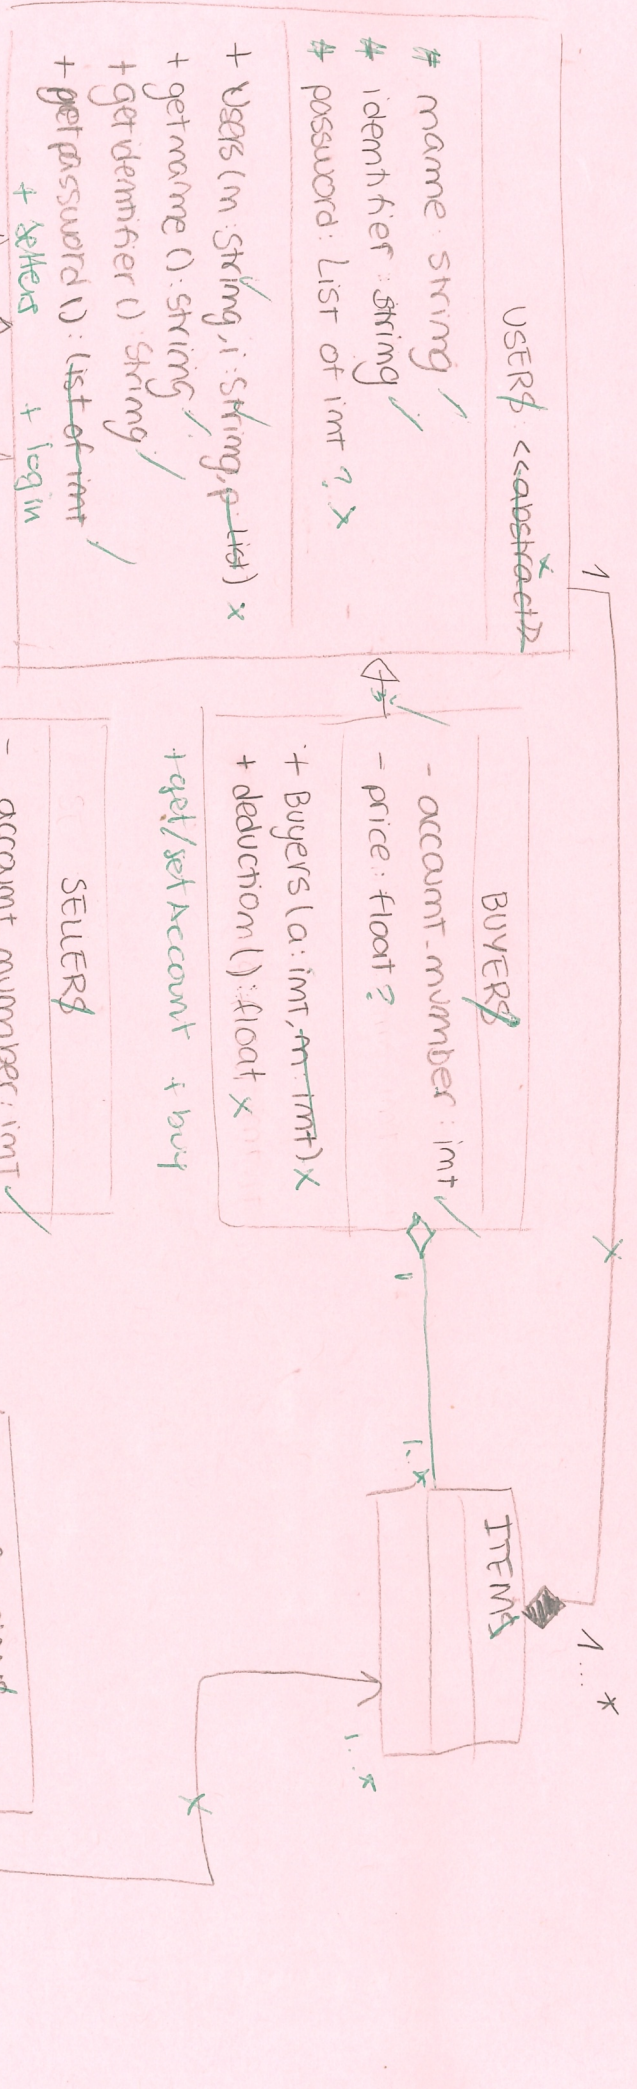 USERS <<abstract>>
# name : string
# identifier : string
# password : List of int ?
+ Users(n:String, i:String, p:List)
+ getname () : string
+ getidentifier () : String
+ getpassword () : List of int
+ setters + login
1
BUYERS
- account_number : int
- price : float ?
+ Buyers(a:int, n:int)
+ deduction() : float
+get/setAccount + buy
SELLERS
- account number : int
1
1..*
ITEMS
1...*
1...*